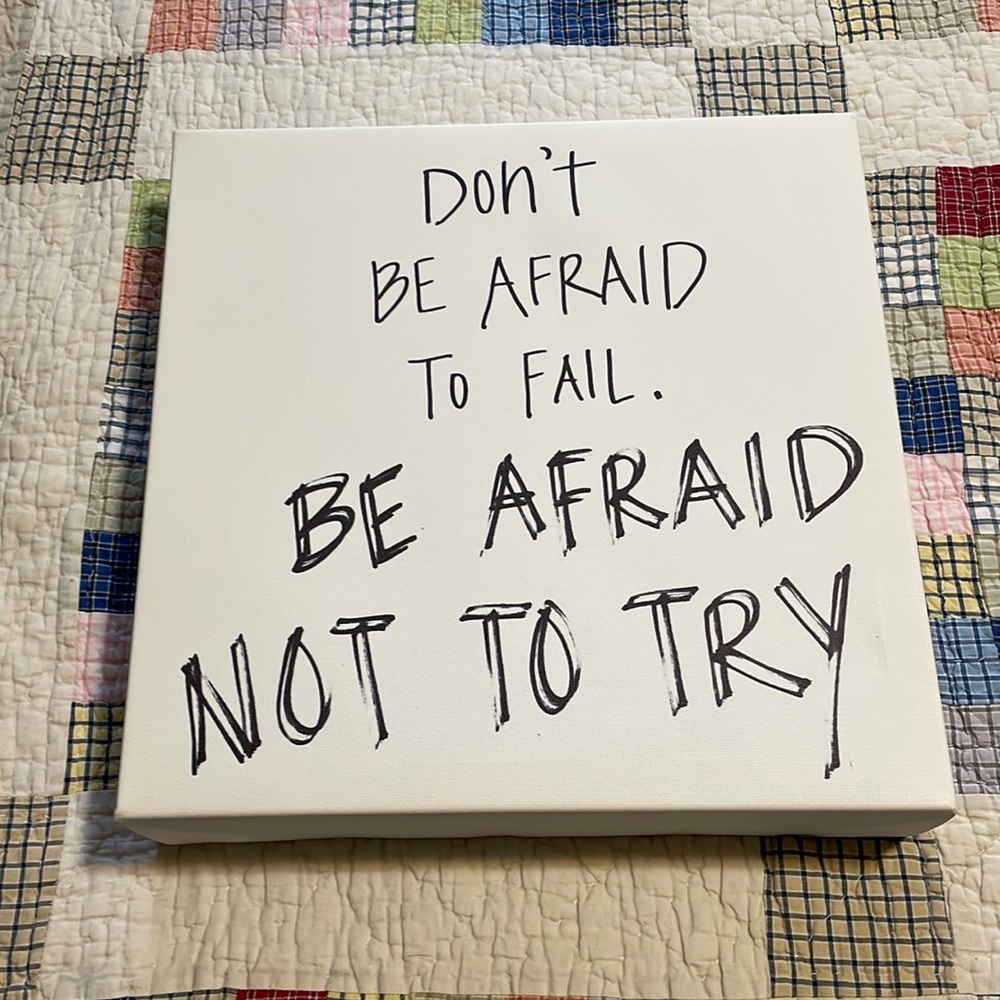 Don't
BE AFRAID
TO FAIL.
BE AFRAID
NOT TO TRY